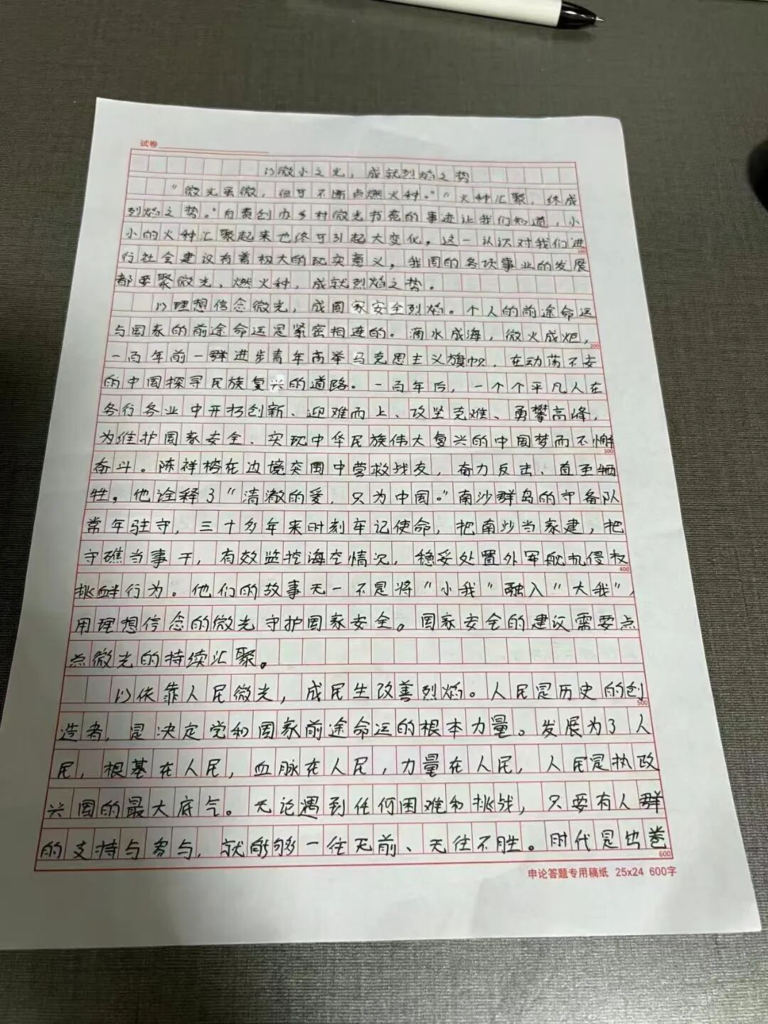 试卷
以微小之光，成就烈焰之势
“微光虽微，但可不断点燃火种。”“火种汇聚，终成
烈焰之势。”自费创办乡村微光书苑的事迹让我们知道，小
小的火种汇聚起来也终可引起大变化。这一认识对我们进
行社会建设有着极大的现实意义，我国的各项事业的发展
都要聚微光，燃火种，成就烈焰之势。
以理想信念微光，成国家安全烈焰。个人的前途命运
与国家的前途命运是紧密相连的。滴水成海，微火成炬，
一百年前一群进步青年高举马克思主义旗帜，在动荡不安
的中国探寻民族复兴的道路。一百年后，一个个平凡人在
各行各业中开拓创新、迎难而上、攻坚克难、勇攀高峰，
为维护国家安全、实现中华民族伟大复兴的中国梦而不懈
奋斗。陈祥榕在边境突围中营救战友，奋力反击，直至牺
牲，他诠释了“清澈的爱，只为中国。”南沙群岛的守备队
常年驻守，三十多年来时刻牢记使命，把南沙当家建，把
守礁当事干，有效监控海空情况，稳妥处置外军舰机侵权
挑衅行为。他们的故事无一不是将“小我”融入“大我”，
用理想信念的微光守护国家安全。国家安全的建设需要点
点微光的持续汇聚。
以依靠人民微光，成民生改善烈焰。人民是历史的创
造者，是决定党和国家前途命运的根本力量。发展为了人
民，根基在人民，血脉在人民，力量在人民，人民是执政
兴国的最大底气。无论遇到任何困难和挑战，只要有人群
的支持与参与，就能够一往无前、无往不胜。时代是出卷
申论答题专用稿纸 25x24 600字